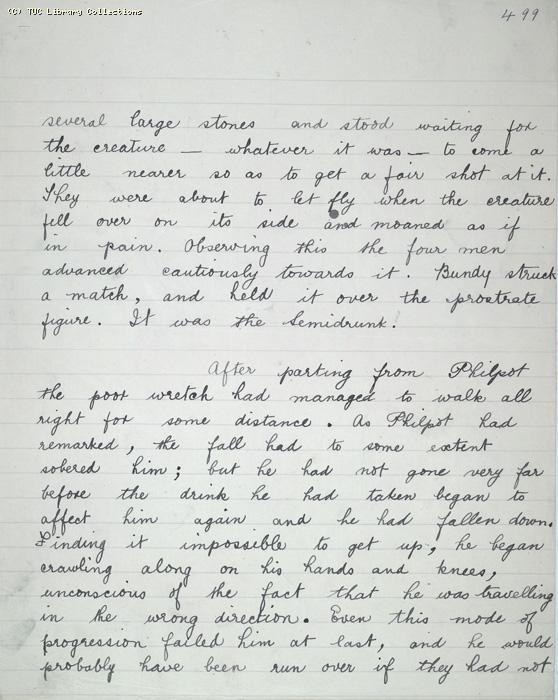 (C) TUC Library Collections
499
several large stones and stood waiting for
the creature — whatever it was — to come a
little nearer so as to get a fair shot at it.
They were about to let fly when the creature
fell over on its side and moaned as if
in pain. Observing this the four men
advanced cautiously towards it. Bundy struck
a match, and held it over the prostrate
figure. It was the Semidrunk.
After parting from Philpot
the poor wretch had managed to walk all
right for some distance. As Philpot had
remarked, the fall had to some extent
sobered him; but he had not gone very far
before the drink he had taken began to
affect him again and he had fallen down.
Finding it impossible to get up, he began
crawling along on his hands and knees,
unconscious of the fact that he was travelling
in the wrong direction. Even this mode of
progression failed him at last, and he would
probably have been run over if they had not